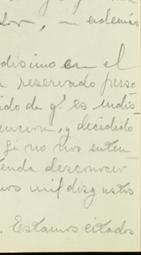 dor, in ademas
disimo en el
reservado perso
ido de q! es indis
tencion, y decidilo
Si no nos enten
tenda desconocer
nos mil disgustos
. Estamos citados